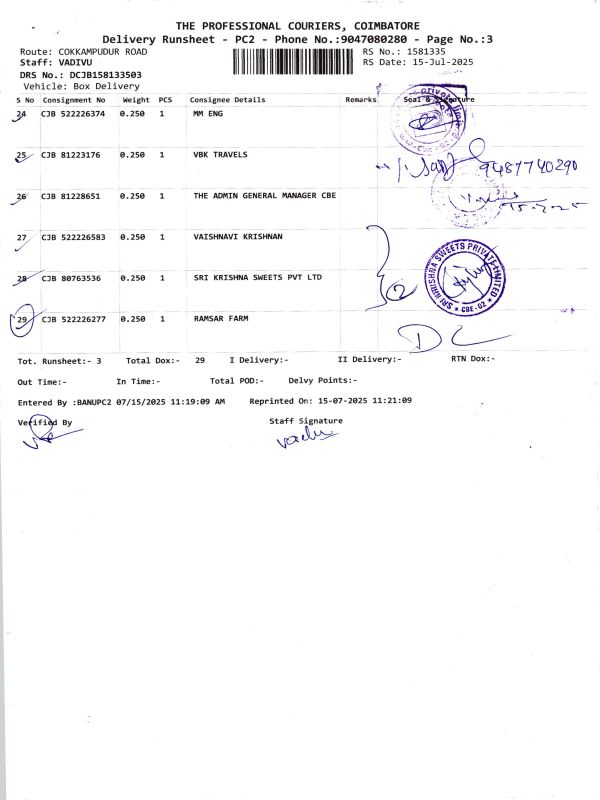 THE PROFESSIONAL COURIERS, COIMBATORE
Delivery Runsheet - PC2 - Phone No.:9047080280 - Page No.:3
Route: COKKAMPUDUR ROAD
RS No.: 1581335
Staff: VADIVU
RS Date: 15-Jul-2025
DRS No.: DCJB158133503
Vehicle: Box Delivery
S No Consignment No Weight PCS Consignee Details Remarks Seal & Signature
24 CJB 522226374 0.250 1 MM ENG
25 CJB 81223176 0.250 1 VBK TRAVELS
9487740290
26 CJB 81228651 0.250 1 THE ADMIN GENERAL MANAGER CBE
15-7-25
27 CJB 522226583 0.250 1 VAISHNAVI KRISHNAN
28 CJB 80763536 0.250 1 SRI KRISHNA SWEETS PVT LTD
2
SRI KRISHNA SWEETS PRIVATE LIMITED
* CBE-02 *
29 CJB 522226277 0.250 1 RAMSAR FARM
DC
Tot. Runsheet:- 3 Total Dox:- 29 I Delivery:- II Delivery:- RTN Dox:-
Out Time:- In Time:- Total POD:- Delvy Points:-
Entered By :BANUPC2 07/15/2025 11:19:09 AM Reprinted On: 15-07-2025 11:21:09
Verified By Staff Signature
vadivu